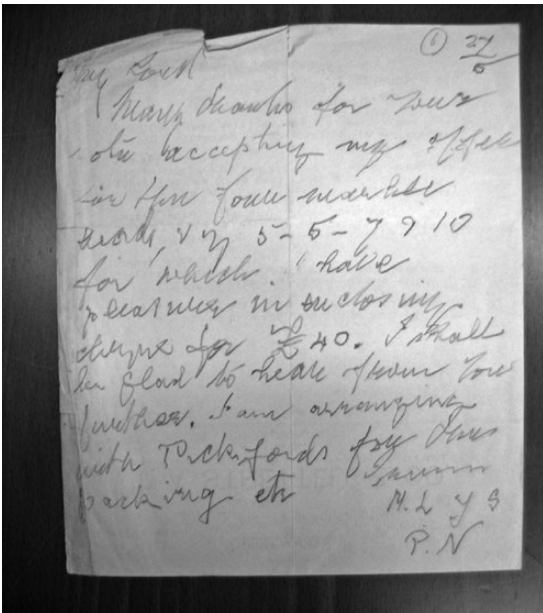 (1) 27/5
My Lord
Many thanks for your
note accepting my offer
for the four marble
heads, viz 5-5-7 9 10
for which I have
pleasure in enclosing
cheque for £40. I shall
be glad to hear from you
further. I am arranging
with Pickfords for
packing etc
M.L Y S
P.N